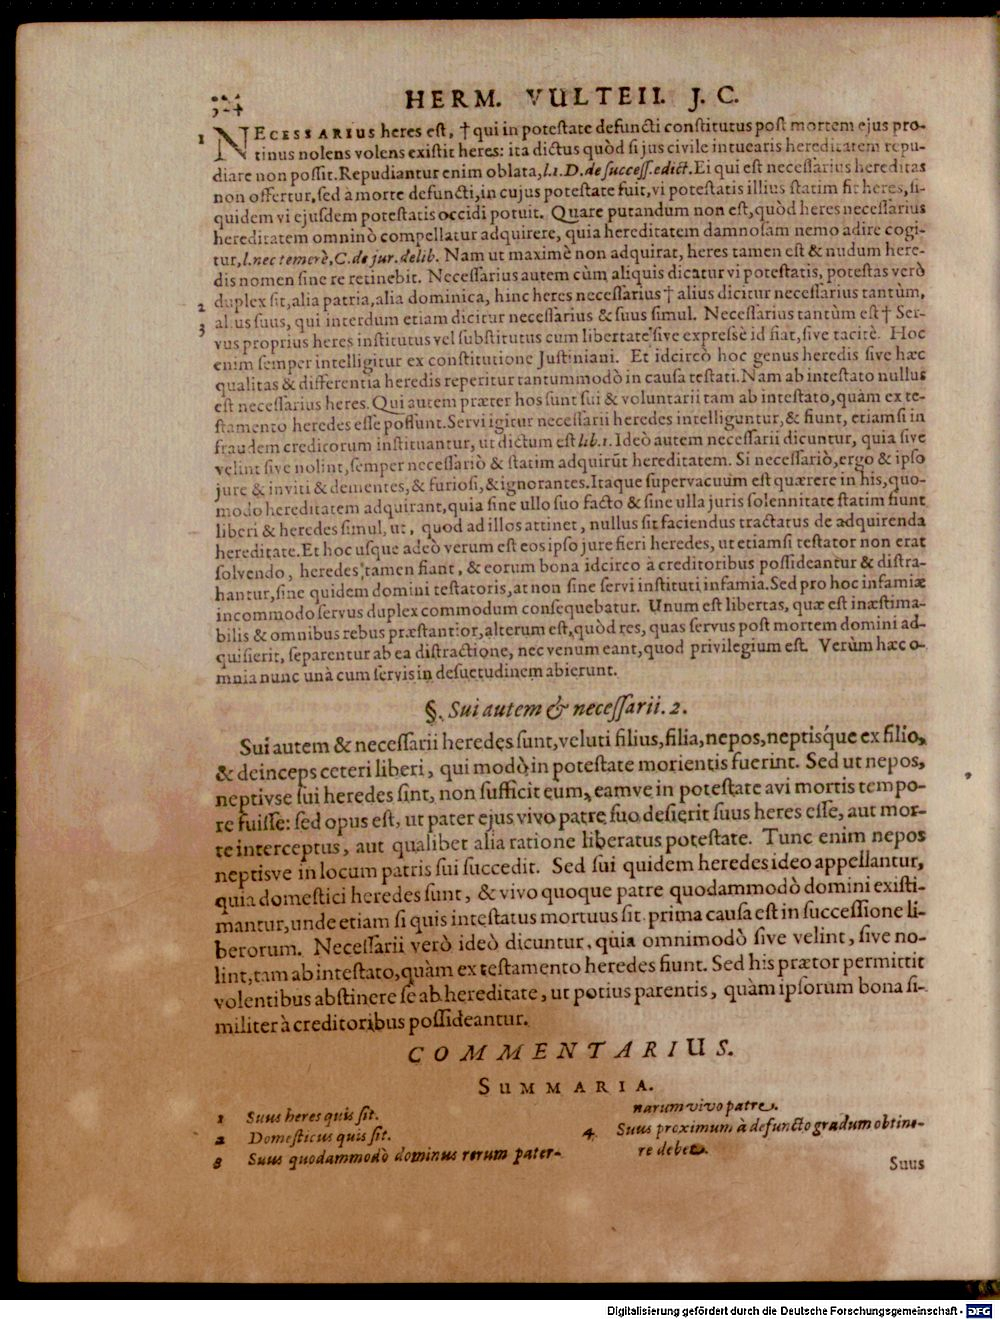 HERM. VULTEII. J. C.
1 NECESSARIUS heres est, † qui in potestate defuncti constitutus post mortem ejus pro-
tinus nolens volens existit heres: ita dictus quòd si jus civile intuearis hereditatem repu-
diare non possit. Repudiantur enim oblata, l.1. D. de success. edict. Ei qui est necessarius hereditas
non offertur, sed à morte defuncti, in cujus potestate fuit, vi potestatis illius statim fit heres, si-
quidem vi ejusdem potestatis occidi potuit. Quare putandum non est, quòd heres necessarius
hereditatem omninò compellatur adquirere, quia hereditatem damnosam nemo adire cogi-
tur, l. nec temerè, C. de jur. delib. Nam ut maximè non adquirat, heres tamen est & nudum here-
dis nomen sine re retinebit. Necessarius autem cùm aliquis dicatur vi potestatis, potestas verò
2 duplex sit, alia patria, alia dominica, hinc heres necessarius † alius dicitur necessarius tantùm,
3 alius suus, qui interdum etiam dicitur necessarius & suus simul. Necessarius tantùm est † Ser-
vus proprius heres institutus vel substitutus cum libertate sive expressè id fiat, sive tacitè. Hoc
enim semper intelligitur ex constitutione Justiniani. Et idcircò hoc genus heredis sive hæc
qualitas & differentia heredis reperitur tantummodò in causa testati. Nam ab intestato nullus
est necessarius heres. Qui autem præter hos sunt sui & voluntarii tam ab intestato, quàm ex te-
stamento heredes esse possunt. Servi igitur necessarii heredes intelliguntur, & fiunt, etiamsi in
fraudem creditorum instituantur, ut dictum est lib. 1. Ideò autem necessarii dicuntur, quia sive
velint sive nolint, semper necessariò & statim adquirūt hereditatem. Si necessariò, ergo & ipso
jure & inviti & dementes, & furiosi, & ignorantes. Itaque supervacuum est quærere in his, quo-
modo hereditatem adquirant, quia sine ullo suo facto & sine ulla juris solennitate statim fiunt
liberi & heredes simul, ut, quod ad illos attinet, nullus sit faciendus tractatus de adquirenda
hereditate. Et hoc usque adeò verum est eos ipso jure fieri heredes, ut etiamsi testator non erat
solvendo, heredes tamen fiant, & eorum bona idcirco à creditoribus possideantur & distra-
hantur, sine quidem domini testatoris, at non sine servi instituti infamia. Sed pro hoc infamiæ
incommodo servus duplex commodum consequebatur. Unum est libertas, quæ est inæstima-
bilis & omnibus rebus præstantior, alterum est, quòd res, quas servus post mortem domini ad-
quisierit, separentur ab ea distractione, nec venum eant, quod privilegium est. Verùm hæc o-
mnia nunc unà cum servis in desuetudinem abierunt.
§. Sui autem & necessarii. 2.
Sui autem & necessarii heredes sunt, veluti filius, filia, nepos, neptisque ex filio,
& deinceps ceteri liberi, qui modò in potestate morientis fuerint. Sed ut nepos,
neptivse sui heredes sint, non sufficit eum, eamve in potestate avi mortis tempo-
re fuisse: sed opus est, ut pater ejus vivo patre suo desierit suus heres esse, aut mor-
te interceptus, aut qualibet alia ratione liberatus potestate. Tunc enim nepos
neptisve in locum patris sui succedit. Sed sui quidem heredes ideo appellantur,
quia domestici heredes sunt, & vivo quoque patre quodammodò domini existi-
mantur, unde etiam si quis intestatus mortuus sit prima causa est in successione li-
berorum. Necessarii verò ideò dicuntur, quia omnimodò sive velint, sive no-
lint, tam ab intestato, quàm ex testamento heredes fiunt. Sed his prætor permittit
volentibus abstinere se ab hereditate, ut potius parentis, quàm ipsorum bona si-
militer à creditoribus possideantur.
COMMENTARIUS.
SUMMARIA.
1 Suus heres quis sit.
2 Domesticus quis sit.
3 Suus quodammodò dominus rerum pater-
narum vivo patre.
4. Suus proximum à defuncto gradum obtine-
re debet.
Suus
Digitalisierung gefördert durch die Deutsche Forschungsgemeinschaft - DFG